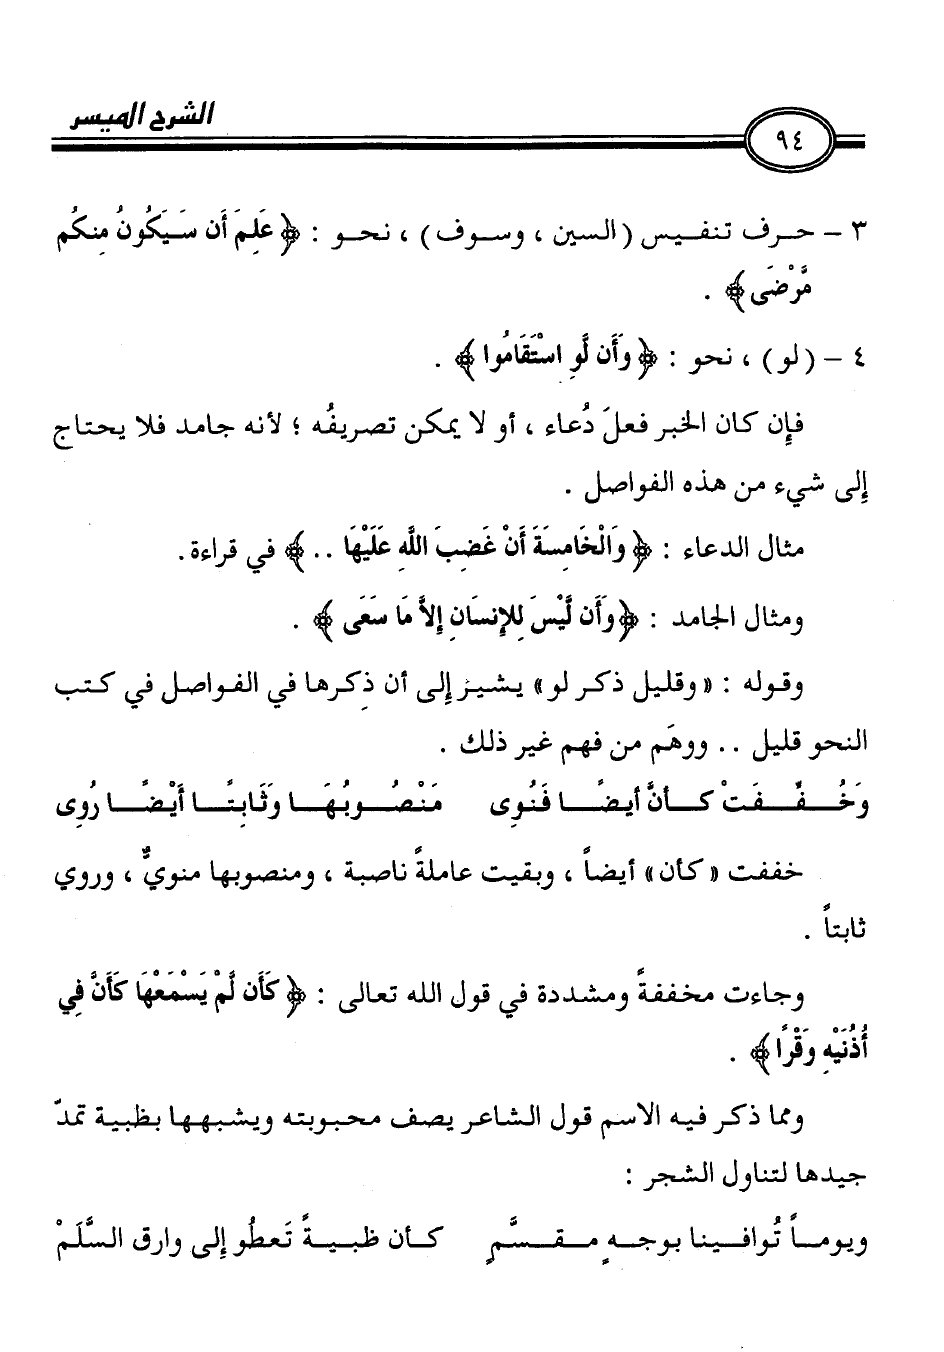 الشرح الميسر
٩٤
٣ - حرف تنفيس (السين ، وسوف) ، نحو : ﴿ عَلِمَ أَن سَيَكُونُ مِنكُم
مَّرْضَى ﴾ .
٤ - (لو) ، نحو : ﴿ وَأَن لَّوِ اسْتَقَامُوا ﴾ .
فإن كان الخبر فعلَ دُعاء ، أو لا يمكن تصريفُه ؛ لأنه جامد فلا يحتاج
إلى شيء من هذه الفواصل .
مثال الدعاء : ﴿ وَالْخَامِسَةَ أَنْ غَضِبَ اللَّهِ عَلَيْهَا .. ﴾ في قراءة.
ومثال الجامد : ﴿ وَأَن لَّيْسَ لِلإِنسَانِ إِلاَّ مَا سَعَى ﴾ .
وقوله : « وقليل ذكر لو» يشير إلى أن ذِكرها في الفواصل في كتب
النحو قليل .. ووهَم من فهم غير ذلك .
وَخُفِّفَتْ كَأنَّ أيضًا فَنُوِى مَنْصُوبُهَا وَثَابِتًا أَيْضًا رُوِى
خففت « كأن» أيضاً ، وبقيت عاملةً ناصبة ، ومنصوبها منويٌّ ، وروي
ثابتاً .
وجاءت مخففةً ومشددة في قول الله تعالى : ﴿ كَأَن لَّمْ يَسْمَعْهَا كَأَنَّ فِي
أُذُنَيْهِ وَقْرًا ﴾ .
ومما ذكر فيه الاسم قول الشاعر يصف محبوبته ويشبهها بظبية تمدّ
جيدها لتناول الشجر :
ويوماً تُوافينا بوجهٍ مقسَّمٍ كأن ظبيةً تَعطُو إلى وارق السَّلَمْ